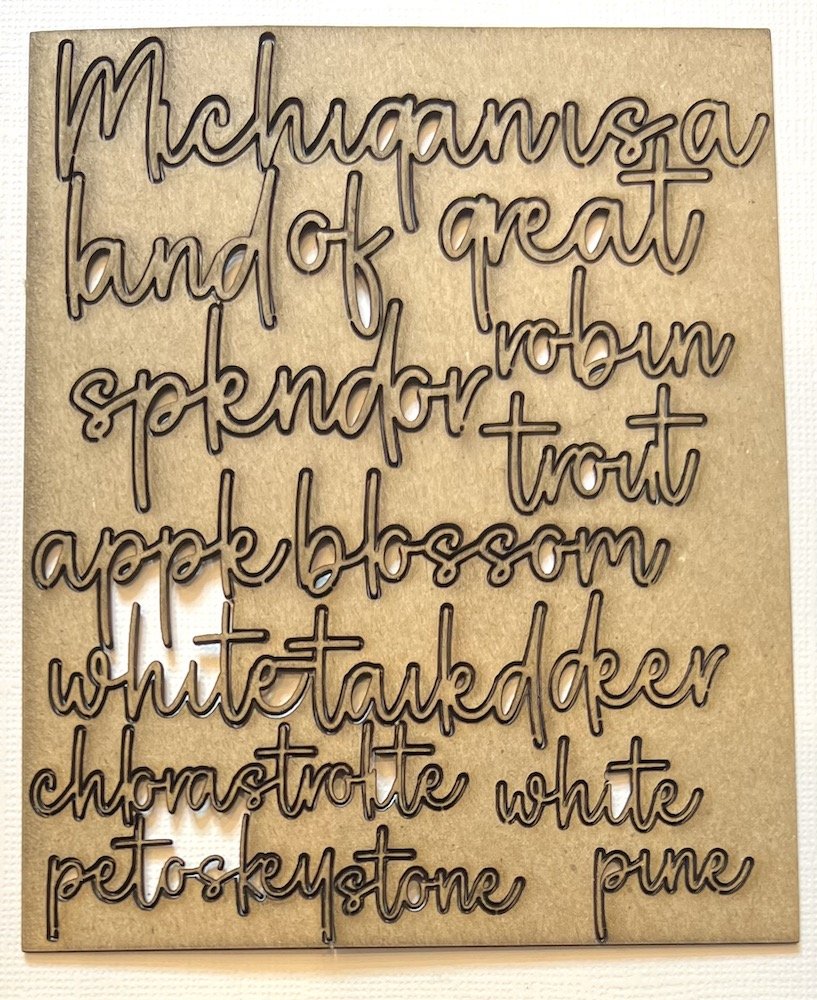 Michigan is a
land of great
splendor robin
trout
apple blossom
whitetailed deer
chlorastrolite white
petoskey stone pine